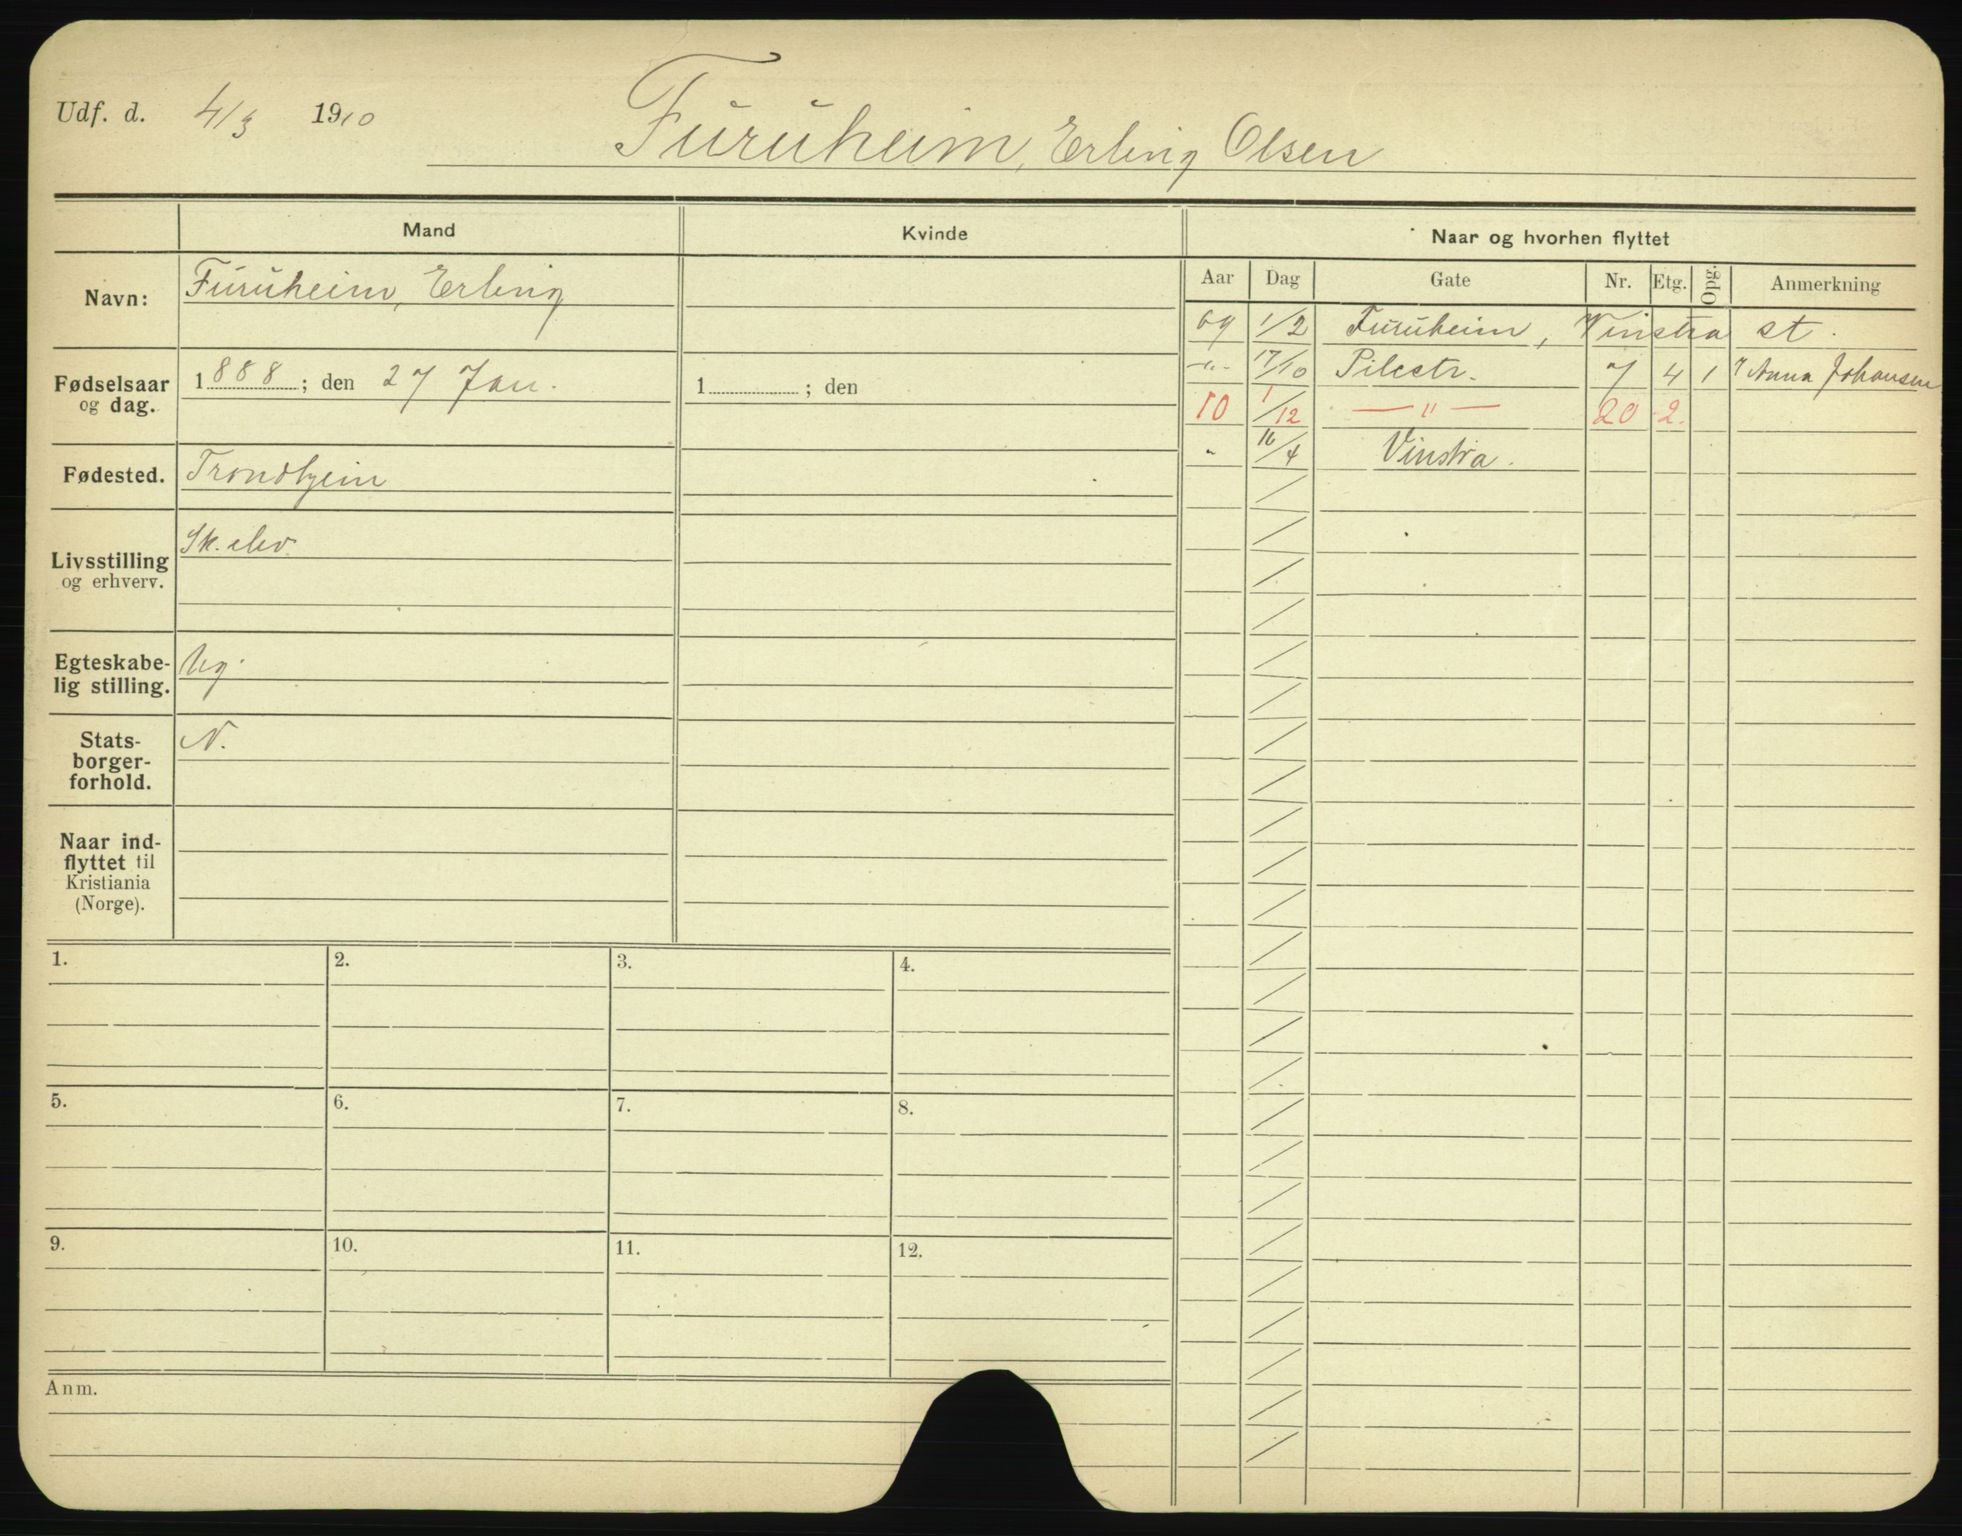 Udf. d. 4/3 1910 Furuheim, Erling Olsen
Mand Kvinde Naar og hvorhen flyttet
Aar Dag Gate Nr. Etg. Opg. Anmerkning
Navn: Furuheim, Erling
09 1/2 Furuheim, Vinstra st.
-"- 17/10 Pilestr. 7 4 1 Anna Johansen
Fødselsaar og dag. 1888; den 27 Jan. 1 ; den
10 1/12 — " — 20 2.
" 16/4 Vinstra.
Fødested. Trondhjem
Livsstilling og erhverv. Sk. elev.
Egteskabe-
lig stilling. Ug.
Stats-
borger-
forhold. N.
Naar ind-
flyttet til
Kristiania
(Norge).
1. 2. 3. 4.
5. 6. 7. 8.
9. 10. 11. 12.
Anm.